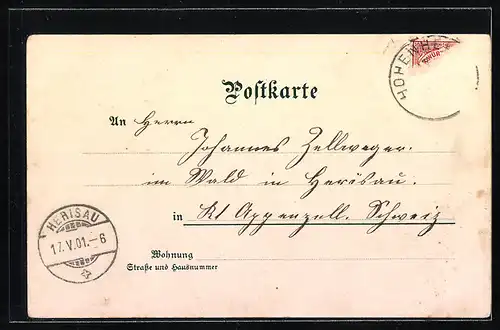 HOHENHE
Postkarte
An Herrn
Johannes Zellweger.
im Wald in Herisau.
in Kt Appenzell. Schweiz
HERISAU
17.V.01.–6
Wohnung
Straße und Hausnummer